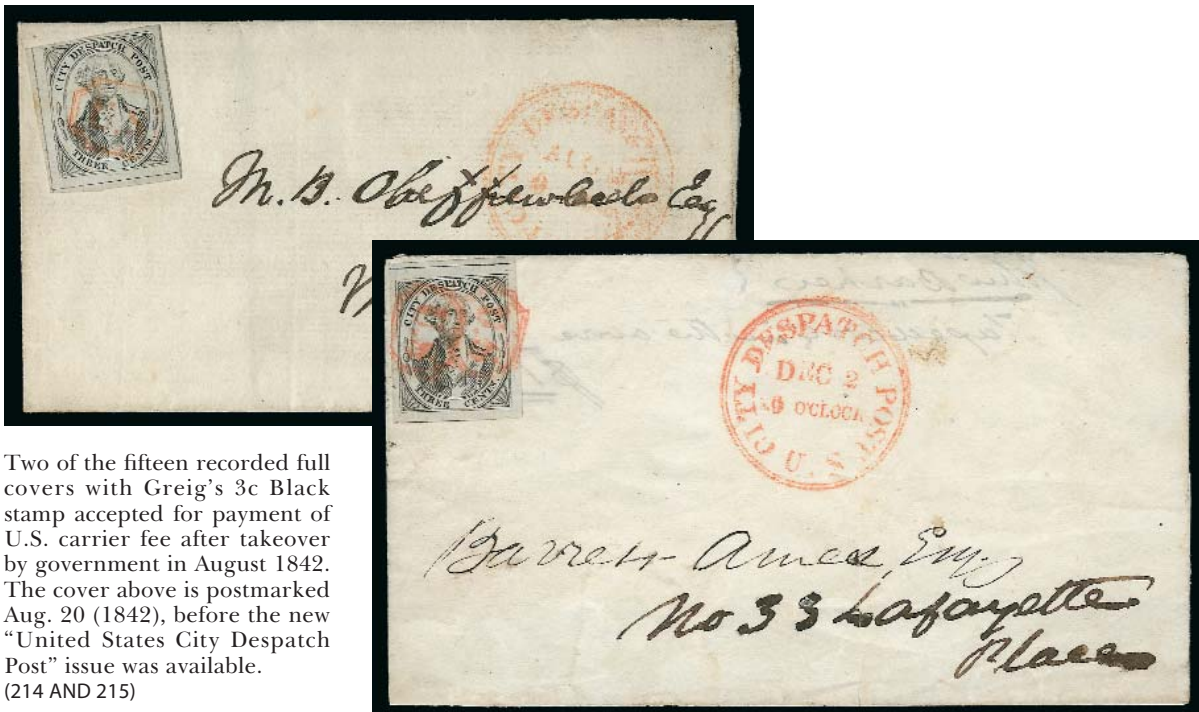 CITY DESPATCH POST
THREE CENTS
CITY DESPATCH
AUG
M. B. Esq
CITY DESPATCH POST
THREE CENTS
CITY DESPATCH POST
DEC 2
O'CLOCK
U.S
Barrett Ames Esq
No 33 Lafayette
Place
Two of the fifteen recorded full
covers with Greig's 3c Black
stamp accepted for payment of
U.S. carrier fee after takeover
by government in August 1842.
The cover above is postmarked
Aug. 20 (1842), before the new
“United States City Despatch
Post” issue was available.
(214 AND 215)